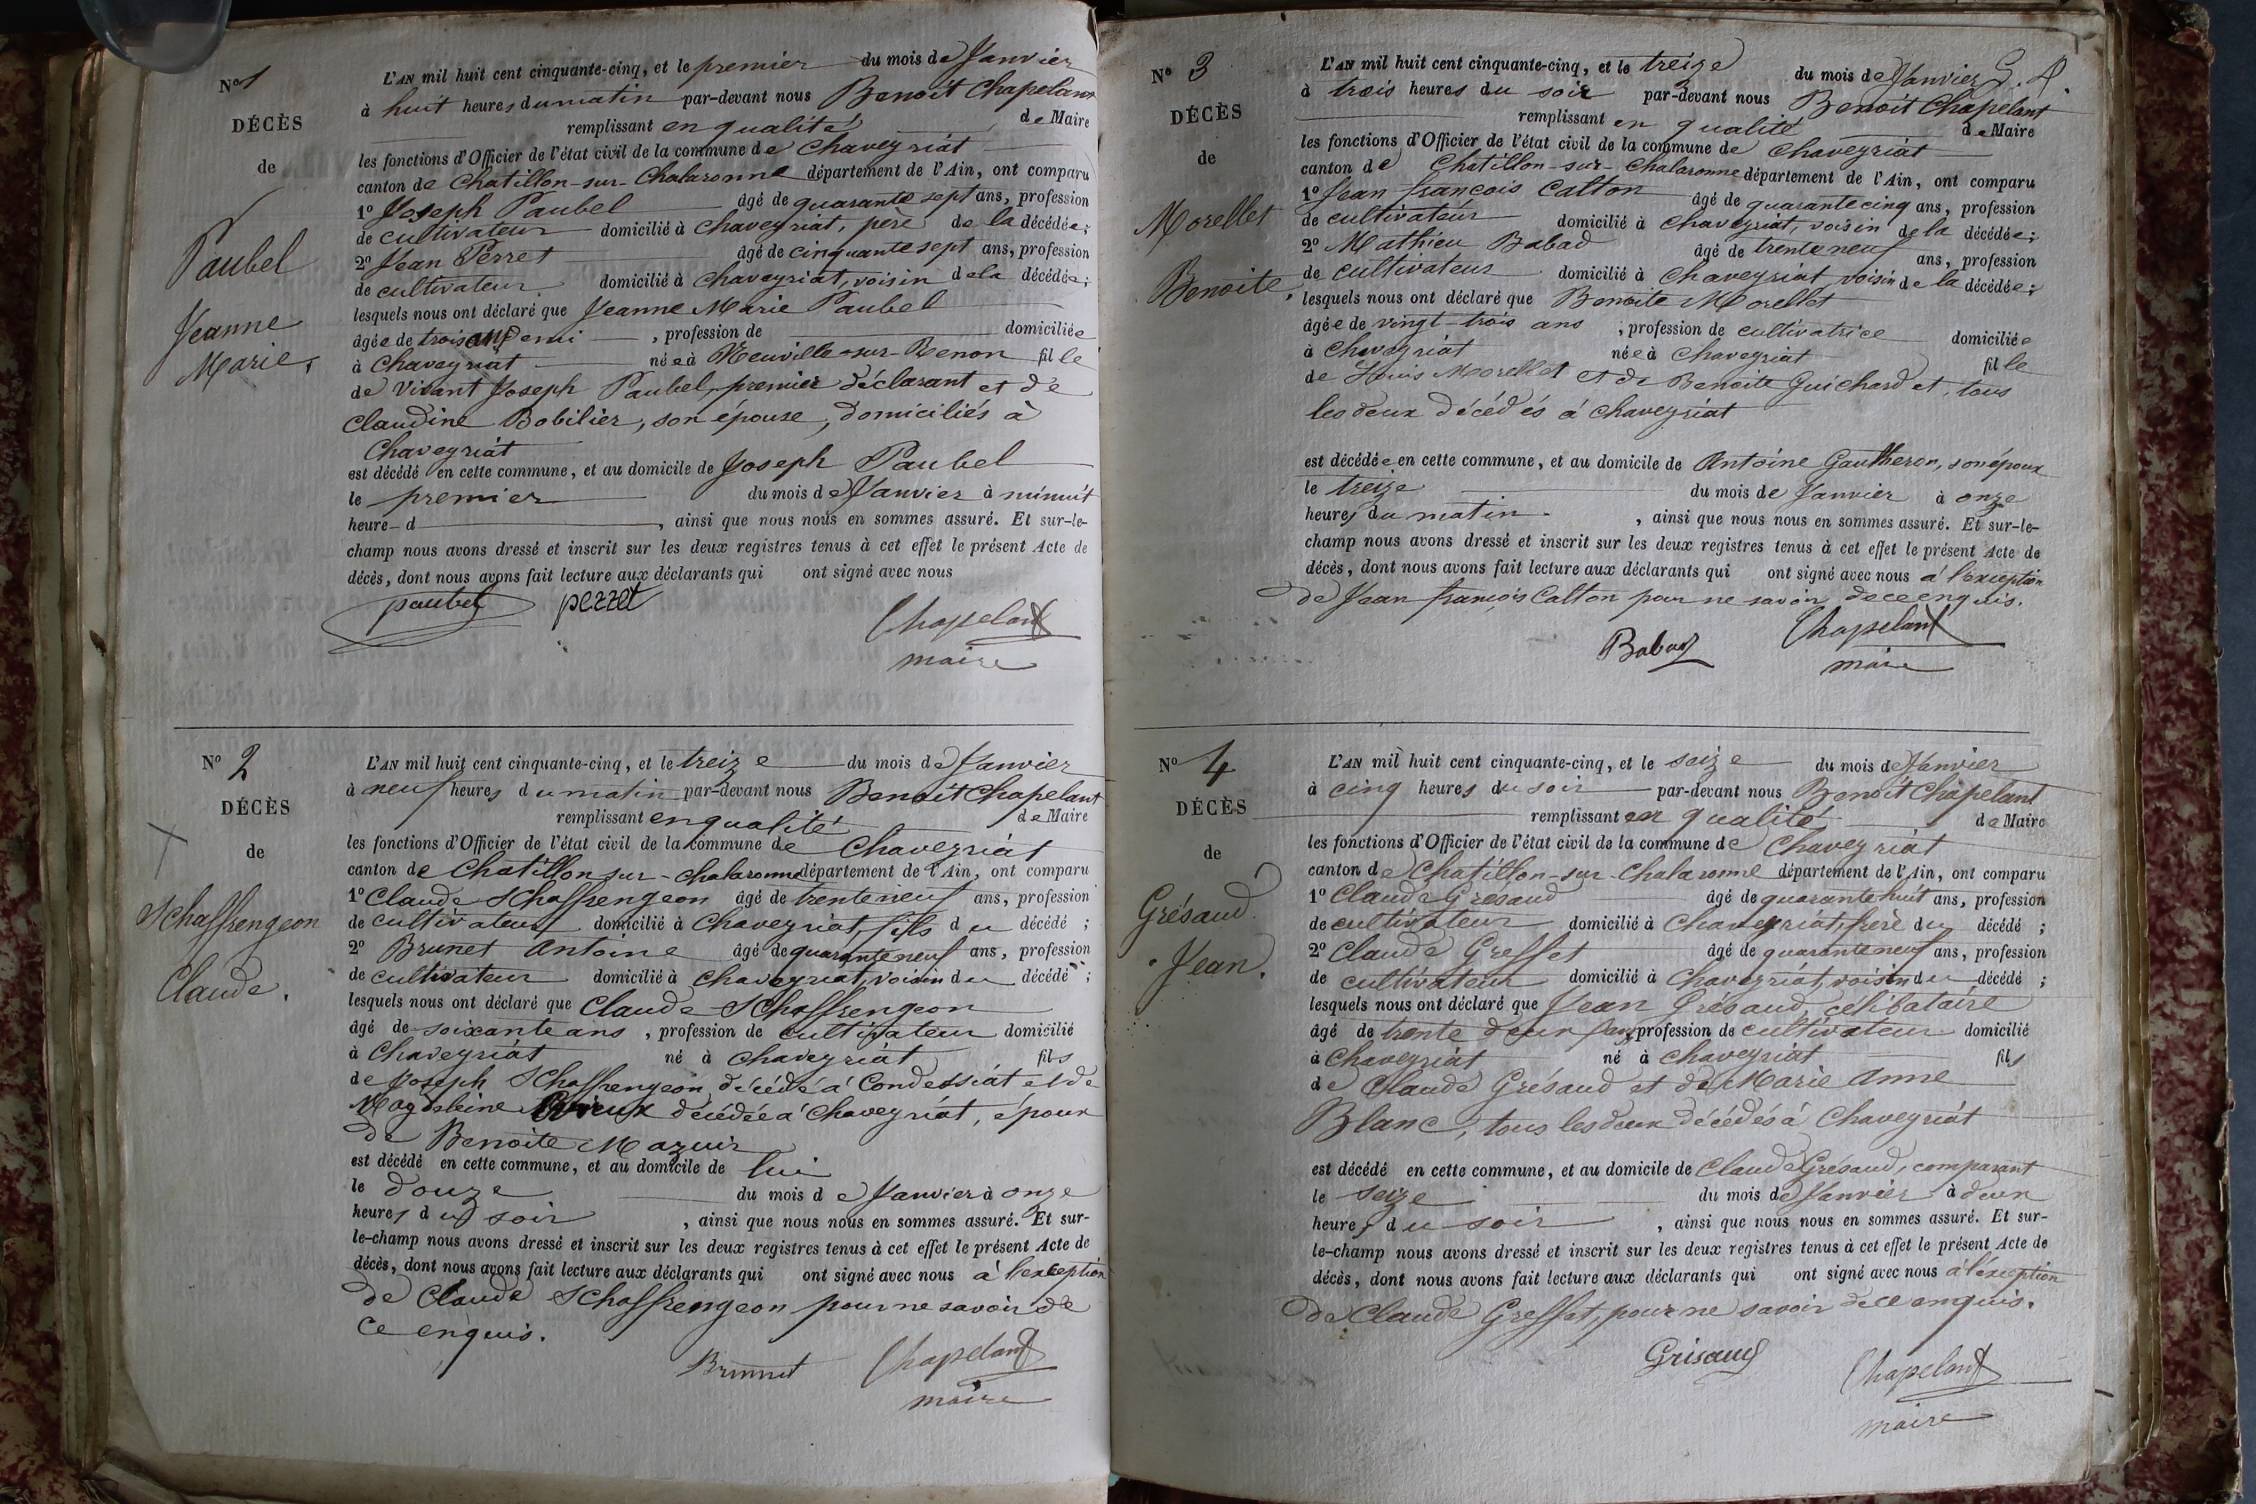 Nº 1
DÉCÈS
de
Paubel
Jeanne
Marie.
L'AN mil huit cent cinquante-cinq, et le premier du mois de Janvier
à huit heures du matin par-devant nous Benoit Chapelant
remplissant en qualité de Maire
les fonctions d'Officier de l'état civil de la commune de Chaveyriat
canton de Chatillon-sur-Chalaronne département de l'Ain, ont comparu
1º Joseph Paubel âgé de quarante sept ans, profession
de cultivateur domicilié à Chaveyriat, père de la décédée;
2º Jean Perret âgé de cinquante sept ans, profession
de cultivateur domicilié à Chaveyriat, voisin de la décédée;
lesquels nous ont déclaré que Jeanne Marie Paubel
âgée de trois ans demi, profession de domiciliée
à Chaveyriat née à Neuville-sur-Renon fille
de vivant Joseph Paubel, premier déclarant et de
Claudine Bobilier, son épouse, domiciliés à
Chaveyriat
est décédé en cette commune, et au domicile de Joseph Paubel
le premier du mois de Janvier à minuit
heure d , ainsi que nous nous en sommes assuré. Et sur-le-
champ nous avons dressé et inscrit sur les deux registres tenus à cet effet le présent Acte de
décès, dont nous avons fait lecture aux déclarants qui ont signé avec nous
paubel perret Chapelant
maire
Nº 2
DÉCÈS
de
Schaffrengeon
Claude.
L'AN mil huit cent cinquante-cinq, et le treize du mois de Janvier
à neuf heures du matin par-devant nous Benoit Chapelant
remplissant en qualité de Maire
les fonctions d'Officier de l'état civil de la commune de Chaveyriat
canton de Chatillon sur-Chalaronne département de l'Ain, ont comparu
1º Claude Schaffrengeon âgé de trente neuf ans, profession
de cultivateur domicilié à Chaveyriat, fils du décédé;
2º Brunet Antoine âgé de quarante neuf ans, profession
de cultivateur domicilié à Chaveyriat, voisin du décédé;
lesquels nous ont déclaré que Claude Schaffrengeon
âgé de soixante ans, profession de cultivateur domicilié
à Chaveyriat né à Chaveyriat fils
de Joseph Schaffrengeon, décédé à Condessiat et de
Magdeleine décédée à Chaveyriat, époux
de Benoite Mazuir
est décédé en cette commune, et au domicile de lui
le douze du mois de Janvier à onze
heures du soir, ainsi que nous nous en sommes assuré. Et sur-
le-champ nous avons dressé et inscrit sur les deux registres tenus à cet effet le présent Acte de
décès, dont nous avons fait lecture aux déclarants qui ont signé avec nous à l'exception
de Claude Schaffrengeon pour ne savoir de
ce enquis.
Brunet Chapelant
maire
Nº 3
DÉCÈS
de
Morellet
Benoite.
L'AN mil huit cent cinquante-cinq, et le treize du mois de Janvier
à trois heures du soir par-devant nous Benoit Chapelant
remplissant en qualité de Maire
les fonctions d'Officier de l'état civil de la commune de Chaveyriat
canton de Chatillon-sur-Chalaronne département de l'Ain, ont comparu
1º Jean françois Calton âgé de quarante cinq ans, profession
de cultivateur domicilié à Chaveyriat, voisin de la décédée;
2º Mathieu Babad âgé de trente neuf ans, profession
de cultivateur domicilié à Chaveyriat, voisin de la décédée;
lesquels nous ont déclaré que Benoite Morellet
âgée de vingt-trois ans, profession de cultivatrice domiciliée
à Chaveyriat née à Chaveyriat fille
de Louis Morellet et de Benoite Guichard et, tous
les deux décédés à Chaveyriat
est décédée en cette commune, et au domicile de Antoine Gautheron, son époux
le treize du mois de Janvier à onze
heures du matin, ainsi que nous nous en sommes assuré. Et sur-le-
champ nous avons dressé et inscrit sur les deux registres tenus à cet effet le présent Acte de
décès, dont nous avons fait lecture aux déclarants qui ont signé avec nous à l'exception
de Jean françois Calton pour ne savoir de ce enquis.
Babad Chapelant
maire
Nº 4
DÉCÈS
de
Grésaud
Jean.
L'AN mil huit cent cinquante-cinq, et le seize du mois de Janvier
à cinq heures du soir par-devant nous Benoit Chapelant
remplissant en qualité de Maire
les fonctions d'Officier de l'état civil de la commune de Chaveyriat
canton de Chatillon-sur-Chalaronne département de l'Ain, ont comparu
1º Claude Grésaud âgé de quarante huit ans, profession
de cultivateur domicilié à Chaveyriat, frère du décédé;
2º Claude Greffet âgé de quarante neuf ans, profession
de cultivateur domicilié à Chaveyriat, voisin du décédé;
lesquels nous ont déclaré que Jean Grésaud, célibataire
âgé de trente deux ans, profession de cultivateur domicilié
à Chaveyriat né à Chaveyriat fils
de Claude Grésaud et de Marie Anne
Blanc, tous les deux décédés à Chaveyriat
est décédé en cette commune, et au domicile de Claude Grésaud, comparant
le seize du mois de Janvier à deux
heures du soir, ainsi que nous nous en sommes assuré. Et sur-
le-champ nous avons dressé et inscrit sur les deux registres tenus à cet effet le présent Acte de
décès, dont nous avons fait lecture aux déclarants qui ont signé avec nous à l'exception
de Claude Greffet, pour ne savoir de ce enquis.
Grisaud Chapelant
maire